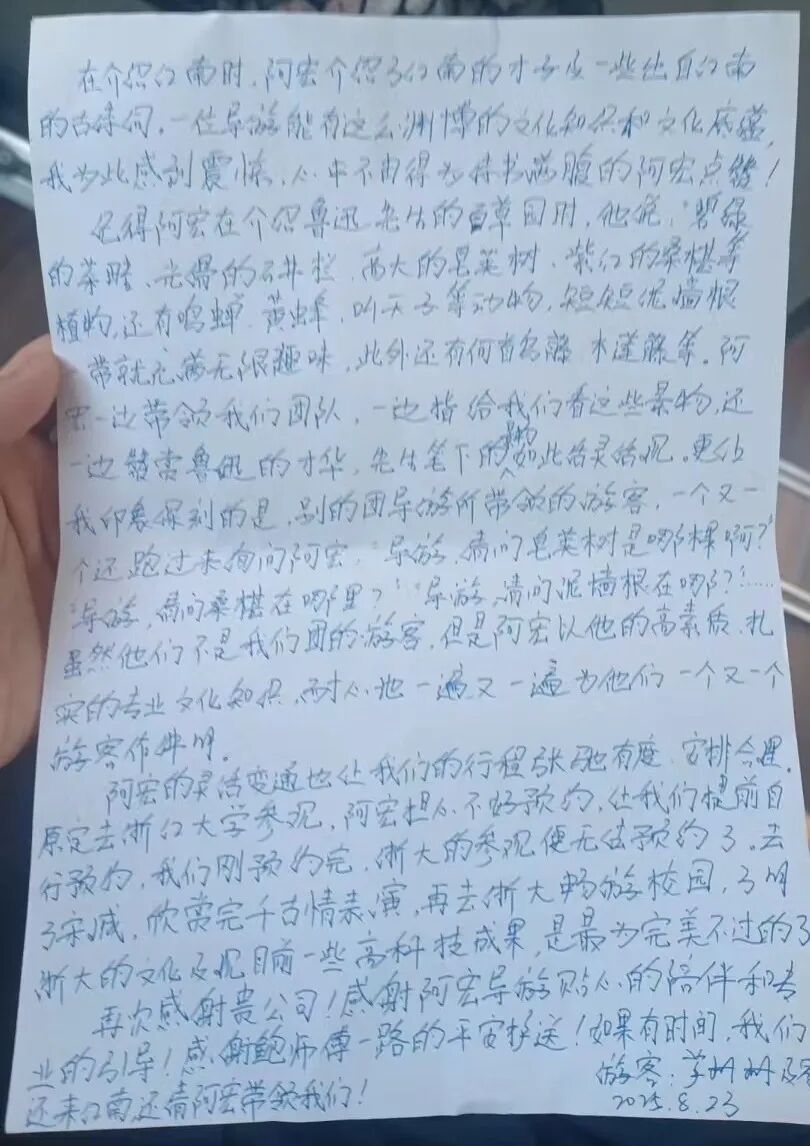 在介绍江南时,阿宏介绍了江南的才子及一些出自江南
的古诗词。一位导游能有这么渊博的文化知识和文化底蕴,
我为此感到震惊,心中不由得为诗书满腹的阿宏点赞!
记得阿宏在介绍鲁迅先生的百草园时,他说:碧绿
的菜畦、光滑的石井栏、高大的皂荚树、紫红的桑椹等
植物,还有鸣蝉、黄蜂、叫天子等动物,短短泥墙根
一带就充满无限趣味,此外还有何首乌藤、木莲藤等。阿
宏一边带领我们团队,一边指给我们看这些景物,还
一边赞赏鲁迅的才华,先生笔下的景物如此活灵活现。更让
我印象深刻的是,别的团导游所带领的游客,一个又一
个还跑过来询问阿宏:“导游,请问皂荚树是哪棵啊?”
“导游,请问桑椹在哪里?”“导游,请问泥墙根在哪?”……
虽然他们不是我们团的游客,但是阿宏以他的高素质、扎
实的专业文化知识,耐心地一遍又一遍为他们一个又一个
游客作说明。
阿宏的灵活变通也让我们的行程张弛有度、安排合理。
原定去浙江大学参观,阿宏担心不好预约,让我们提前自
行预约,我们刚预约完,浙大的参观便无法预约了。去
了宋城,欣赏完千古情表演,再去浙大畅游校园,了解
浙大的文化及现目前一些高科技成果,是最为完美不过的了
再次感谢贵公司!感谢阿宏导游贴心的陪伴和专
业的引导!感谢鲍师傅一路的平安护送!如果有时间,我们
还来江南还请阿宏带领我们!
游客:
2025.8.23